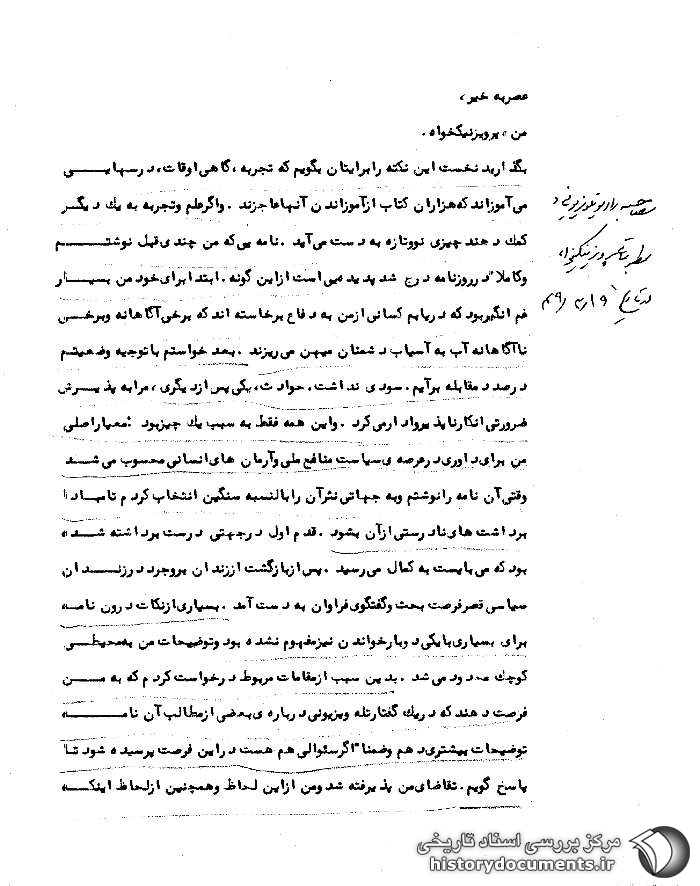 عصر به خیر ،
من ، پرویز نیکخواه .
بگذارید نخست این نکته را برایتان بگویم که تجربه ، گاهی اوقات ، درسهایی
می آموزاند که هزاران کتاب از آموزاندن آنها عاجزند . و اگر علم و تجربه به یك دیگر
کمك دهند چیزی نو و تازه به دست می آید . نامه یی که من چندی قبل نوشتم
و کاملا" در روزنامه درج شد پدیده یی است از این گونه . ابتدا برای خود من بسیار
غم انگیز بود که دریابم کسانی از من به دفاع برخاسته اند که برخی آگاهانه و برخی
ناآگاهانه آب به آسیاب دشمنان میهن می ریزند . بعد خواستم با توجیه وضعیتم
درصدد مقابله برآیم . سودی نداشت ، حوادث ، یکی پس از دیگری ، مرا به پذیرش
ضرورتی انکارناپذیر وادار می کرد . و این همه فقط به سبب یك چیز بود : معیار اصلی
من برای داوری در عرصه ی سیاست منافع ملی و آرمان های انسانی محسوب می شد
وقتی آن نامه را نوشتم و به جهاتی نثر آن را بالنسبه سنگین انتخاب کردم تا مبادا
برداشت های نادرستی از آن بشود . قدم اول در جهتی درست برداشته شده
بود که می بایست به کمال می رسید . پس از بازگشت از زندان بروجرد در زندان
سیاسی قصر فرصت بحث و گفتگوی فراوان به دست آمد . بسیاری از نکات درون نامه
برای بسیاری با یکی دو بار خواندن نیز مفهوم نشده بود و توضیحات من به محیطی
کوچك محدود می شد . بدین سبب از مقامات مربوط درخواست کردم که به من
فرصت دهند که در یك گفتار تله ویزیونی درباره ی بعضی از مطالب آن نامه
توضیحات بیشتری دهم و ضمنا" اگر سئوالی هم هست در این فرصت پرسیده شود تا
پاسخ گویم . تقاضای من پذیرفته شد و من از این لحاظ و همچنین از لحاظ اینکه
مصاحبه رادیو تلویزیونی و
مطبوعاتی پرویز نیکخواه
در تاریخ
مرکز بررسی اسناد تاریخی
historydocuments.ir